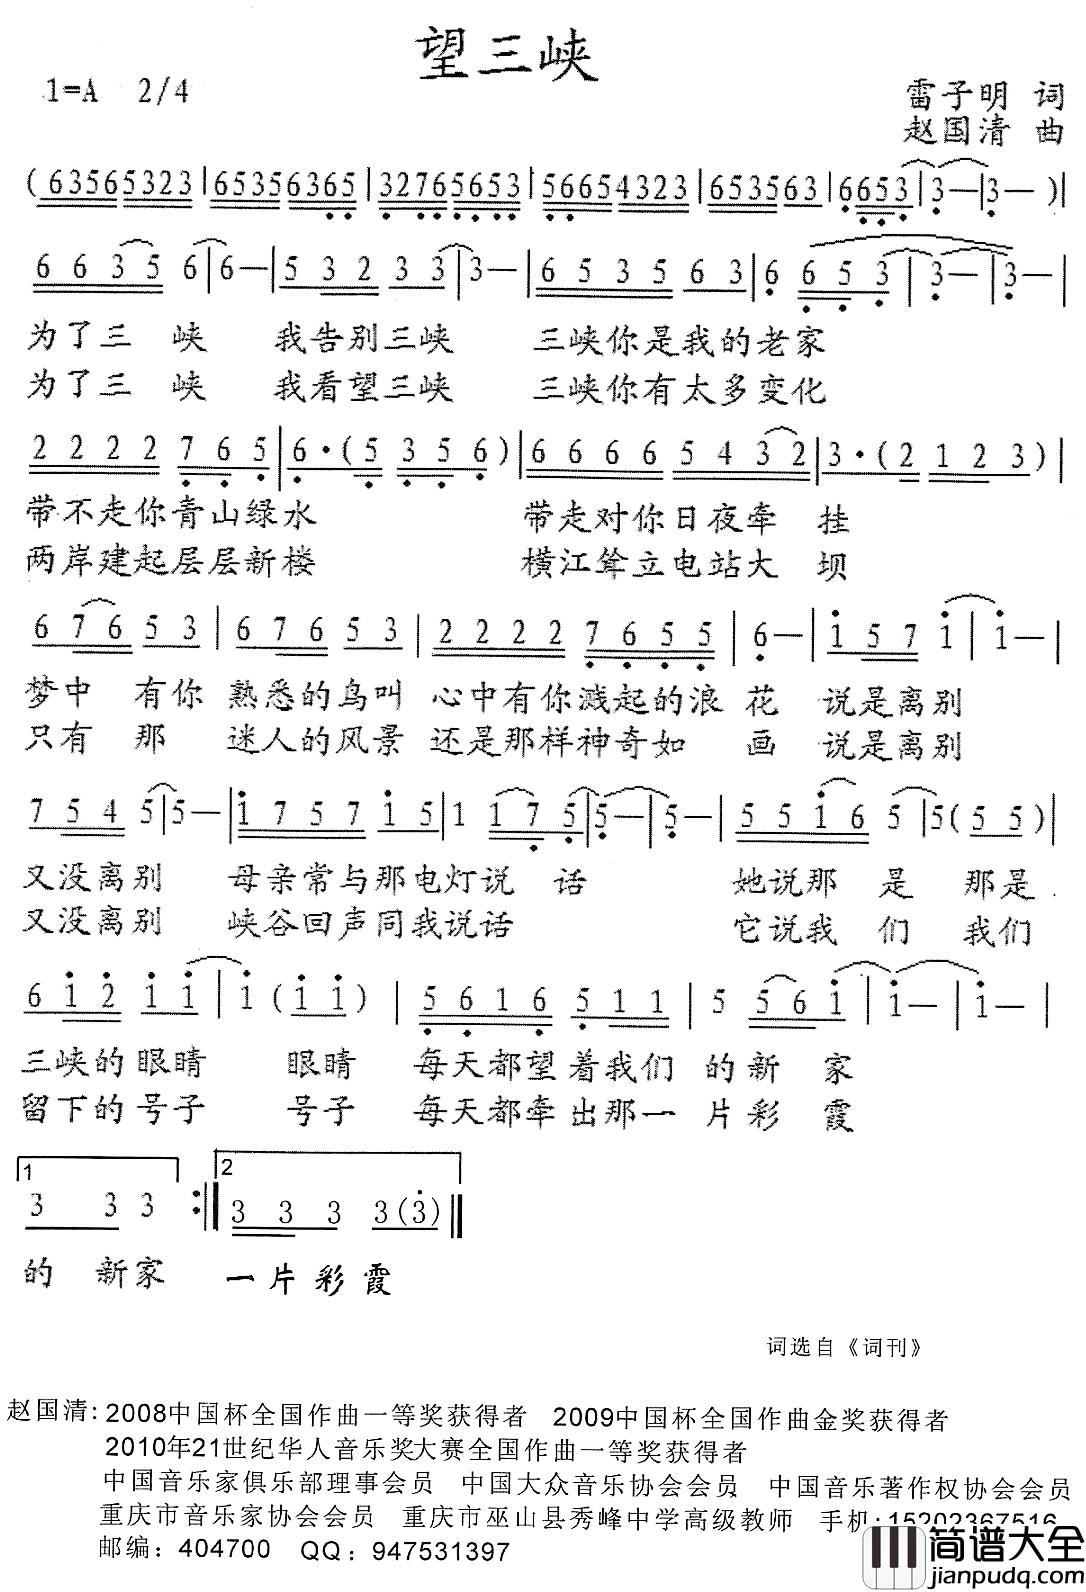 望三峡
1=A 2/4
雷子明 词
赵国清 曲
(63565323|65356365|32765653|56654323|65356 3|6 653|3—|3—)|
6 6 3 5 6|6—|5 3 2 3 3|3—|6 5 3 5 6 3|6 6 5 3|3—|3—|
为了三 峡 我告别三峡 三峡你是我的老家
为了三 峡 我看望三峡 三峡你有太多变化
2 2 2 2 7 6 5|6·(5 3 5 6)|6 6 6 6 5 4 3 2|3·(2 1 2 3)|
带不走你青山绿水 带走对你日夜牵 挂
两岸建起层层新楼 横江耸立电站大 坝
6 7 6 5 3|6 7 6 5 3|2 2 2 2 7 6 5 5|6—|1 5 7 1|1—|
梦中 有你 熟悉的鸟叫 心中有你溅起的浪 花 说是离别
只有 那 迷人的风景 还是那样神奇如 画 说是离别
7 5 4 5|5—|1 7 5 7 1 5|1 1 7 5|5—|5—|5 5 1 6 5|5(5 5)|
又没离别 母亲常与那电灯说 话 她说那 是 那是
又没离别 峡谷回声同我说话 它说我 们 我们
6 1 2 1 1|1(1 1)|5 6 1 6 5 1 1|5 5 6 1|1—|1—|
三峡的眼睛 眼睛 每天都望着我们 的新 家
留下的号子 号子 每天都牵出那一 片彩 霞
1 2
3 3 3 :‖ 3 3 3 3(3)‖
的 新家 一片彩霞
词选自《词刊》
赵国清: 2008中国杯全国作曲一等奖获得者 2009中国杯全国作曲金奖获得者
2010年21世纪华人音乐奖大赛全国作曲一等奖获得者
中国音乐家俱乐部理事会员 中国大众音乐协会会员 中国音乐著作权协会会员
重庆市音乐家协会会员 重庆市巫山县秀峰中学高级教师 手机:15202367516
邮编: 404700 QQ: 947531397
简谱大全
jianpudq.com